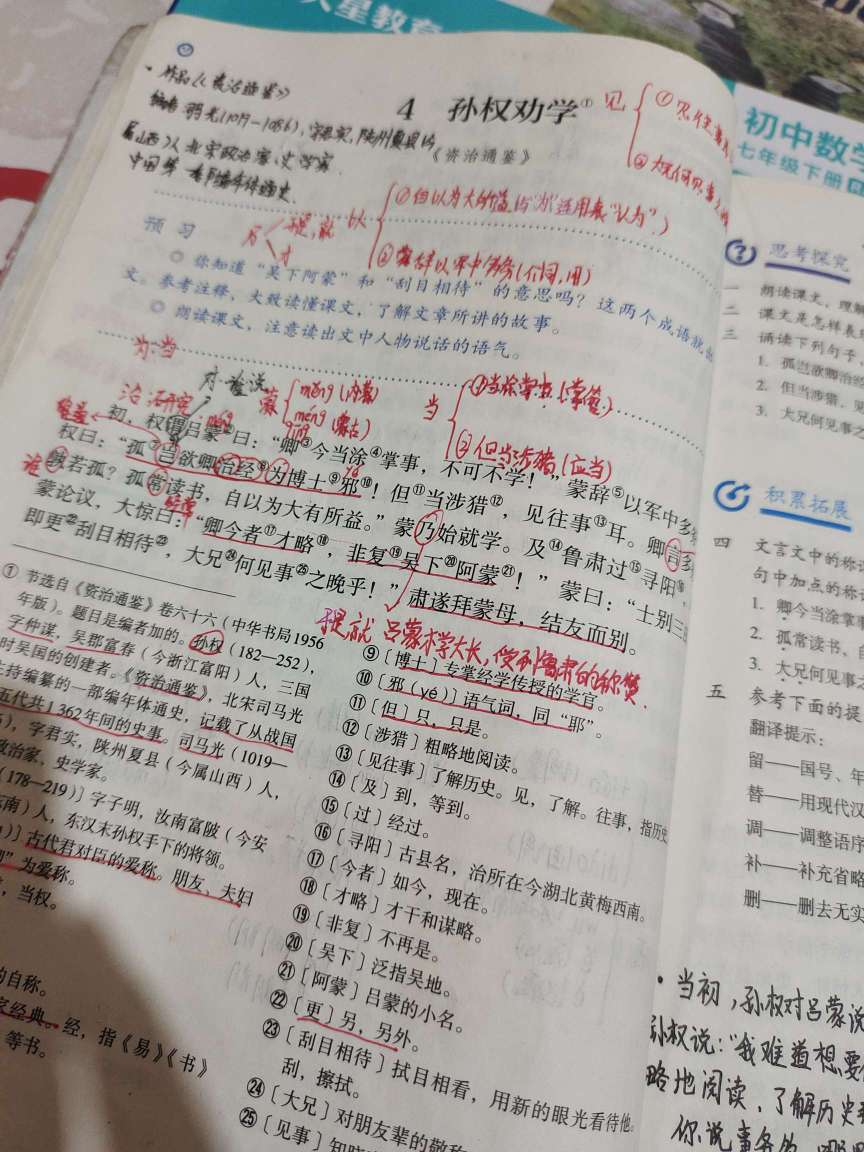 天星教育
初中数学
七年级下册
4 孙权劝学①
《资治通鉴》
预 习
◎ 你知道“吴下阿蒙”和“刮目相待”的意思吗？这两个成语就
文。参考注释，大致读懂课文，了解文章所讲的故事。
◎ 朗读课文，注意读出文中人物说话的语气。
初，权谓吕蒙②曰：“卿③今当涂④掌事，不可不学！”蒙辞⑤以军中多
权曰：“孤⑦岂欲卿治经⑧为博士⑨邪⑩！但⑪当涉猎⑫，见往事⑬耳。卿言多
孰若孤？孤常读书，自以为大有所益。”蒙乃始就学。及⑭鲁肃过⑮寻阳⑯，
蒙论议，大惊曰：“卿今者⑰才略⑱，非复⑲吴下⑳阿蒙㉑！”蒙曰：“士别三
即更㉒刮目相待㉓，大兄㉔何见事㉕之晚乎！”肃遂拜蒙母，结友而别。
① 节选自《资治通鉴》卷六十六（中华书局1956
年版）。题目是编者加的。孙权（182—252），
字仲谋，吴郡富春（今浙江富阳）人，三国
时吴国的创建者。《资治通鉴》，北宋司马光
主持编纂的一部编年体通史，记载了从战国
五代共1362年间的史事。司马光（1019—
），字君实，陕州夏县（今属山西）人，
政治家、史学家。
（178—219）］字子明，汝南富陂（今安
南）人，东汉末孙权手下的将领。
］古代君对臣的爱称。朋友、夫妇
”为爱称。
，当权。
的自称。
家经典。经，指《易》《书》
等书。
⑨［博士］专掌经学传授的学官。
⑩［邪（yé）］语气词，同“耶”。
⑪［但］只，只是。
⑫［涉猎］粗略地阅读。
⑬［见往事］了解历史。见，了解。往事，指历史
⑭［及］到，等到。
⑮［过］经过。
⑯［寻阳］古县名，治所在今湖北黄梅西南。
⑰［今者］如今，现在。
⑱［才略］才干和谋略。
⑲［非复］不再是。
⑳［吴下］泛指吴地。
㉑［阿蒙］吕蒙的小名。
㉒［更］另，另外。
㉓［刮目相待］拭目相看，用新的眼光看待他。
刮，擦拭。
㉔［大兄］对朋友辈的敬称
㉕［见事］知晓
思考探究
一 朗读课文，理解
二 课文是怎样表
三 诵读下列句子，
1. 孤岂欲卿治经
2. 但当涉猎，见
3. 大兄何见事之
积累拓展
四 文言文中的称谓
句中加点的称谓
1. 卿今当涂掌事
2. 孤常读书，自
3. 大兄何见事之
五 参考下面的提
翻译提示：
留——国号、年
替——用现代汉
调——调整语序
补——补充省略
删——删去无实
见
以
①但以为大有所益
②蒙辞以军中多务（介词，用）
蒙
měng（内蒙）
měng（蒙古）
当
①当涂掌事（掌管）
②但当涉猎（应当）
治：研究
谁
为：当
吕蒙才学大长，受到鲁肃的称赞.
· 当初，孙权对吕蒙说
孙权说：“我难道想要
略地阅读，了解历史
你说事务多，哪里